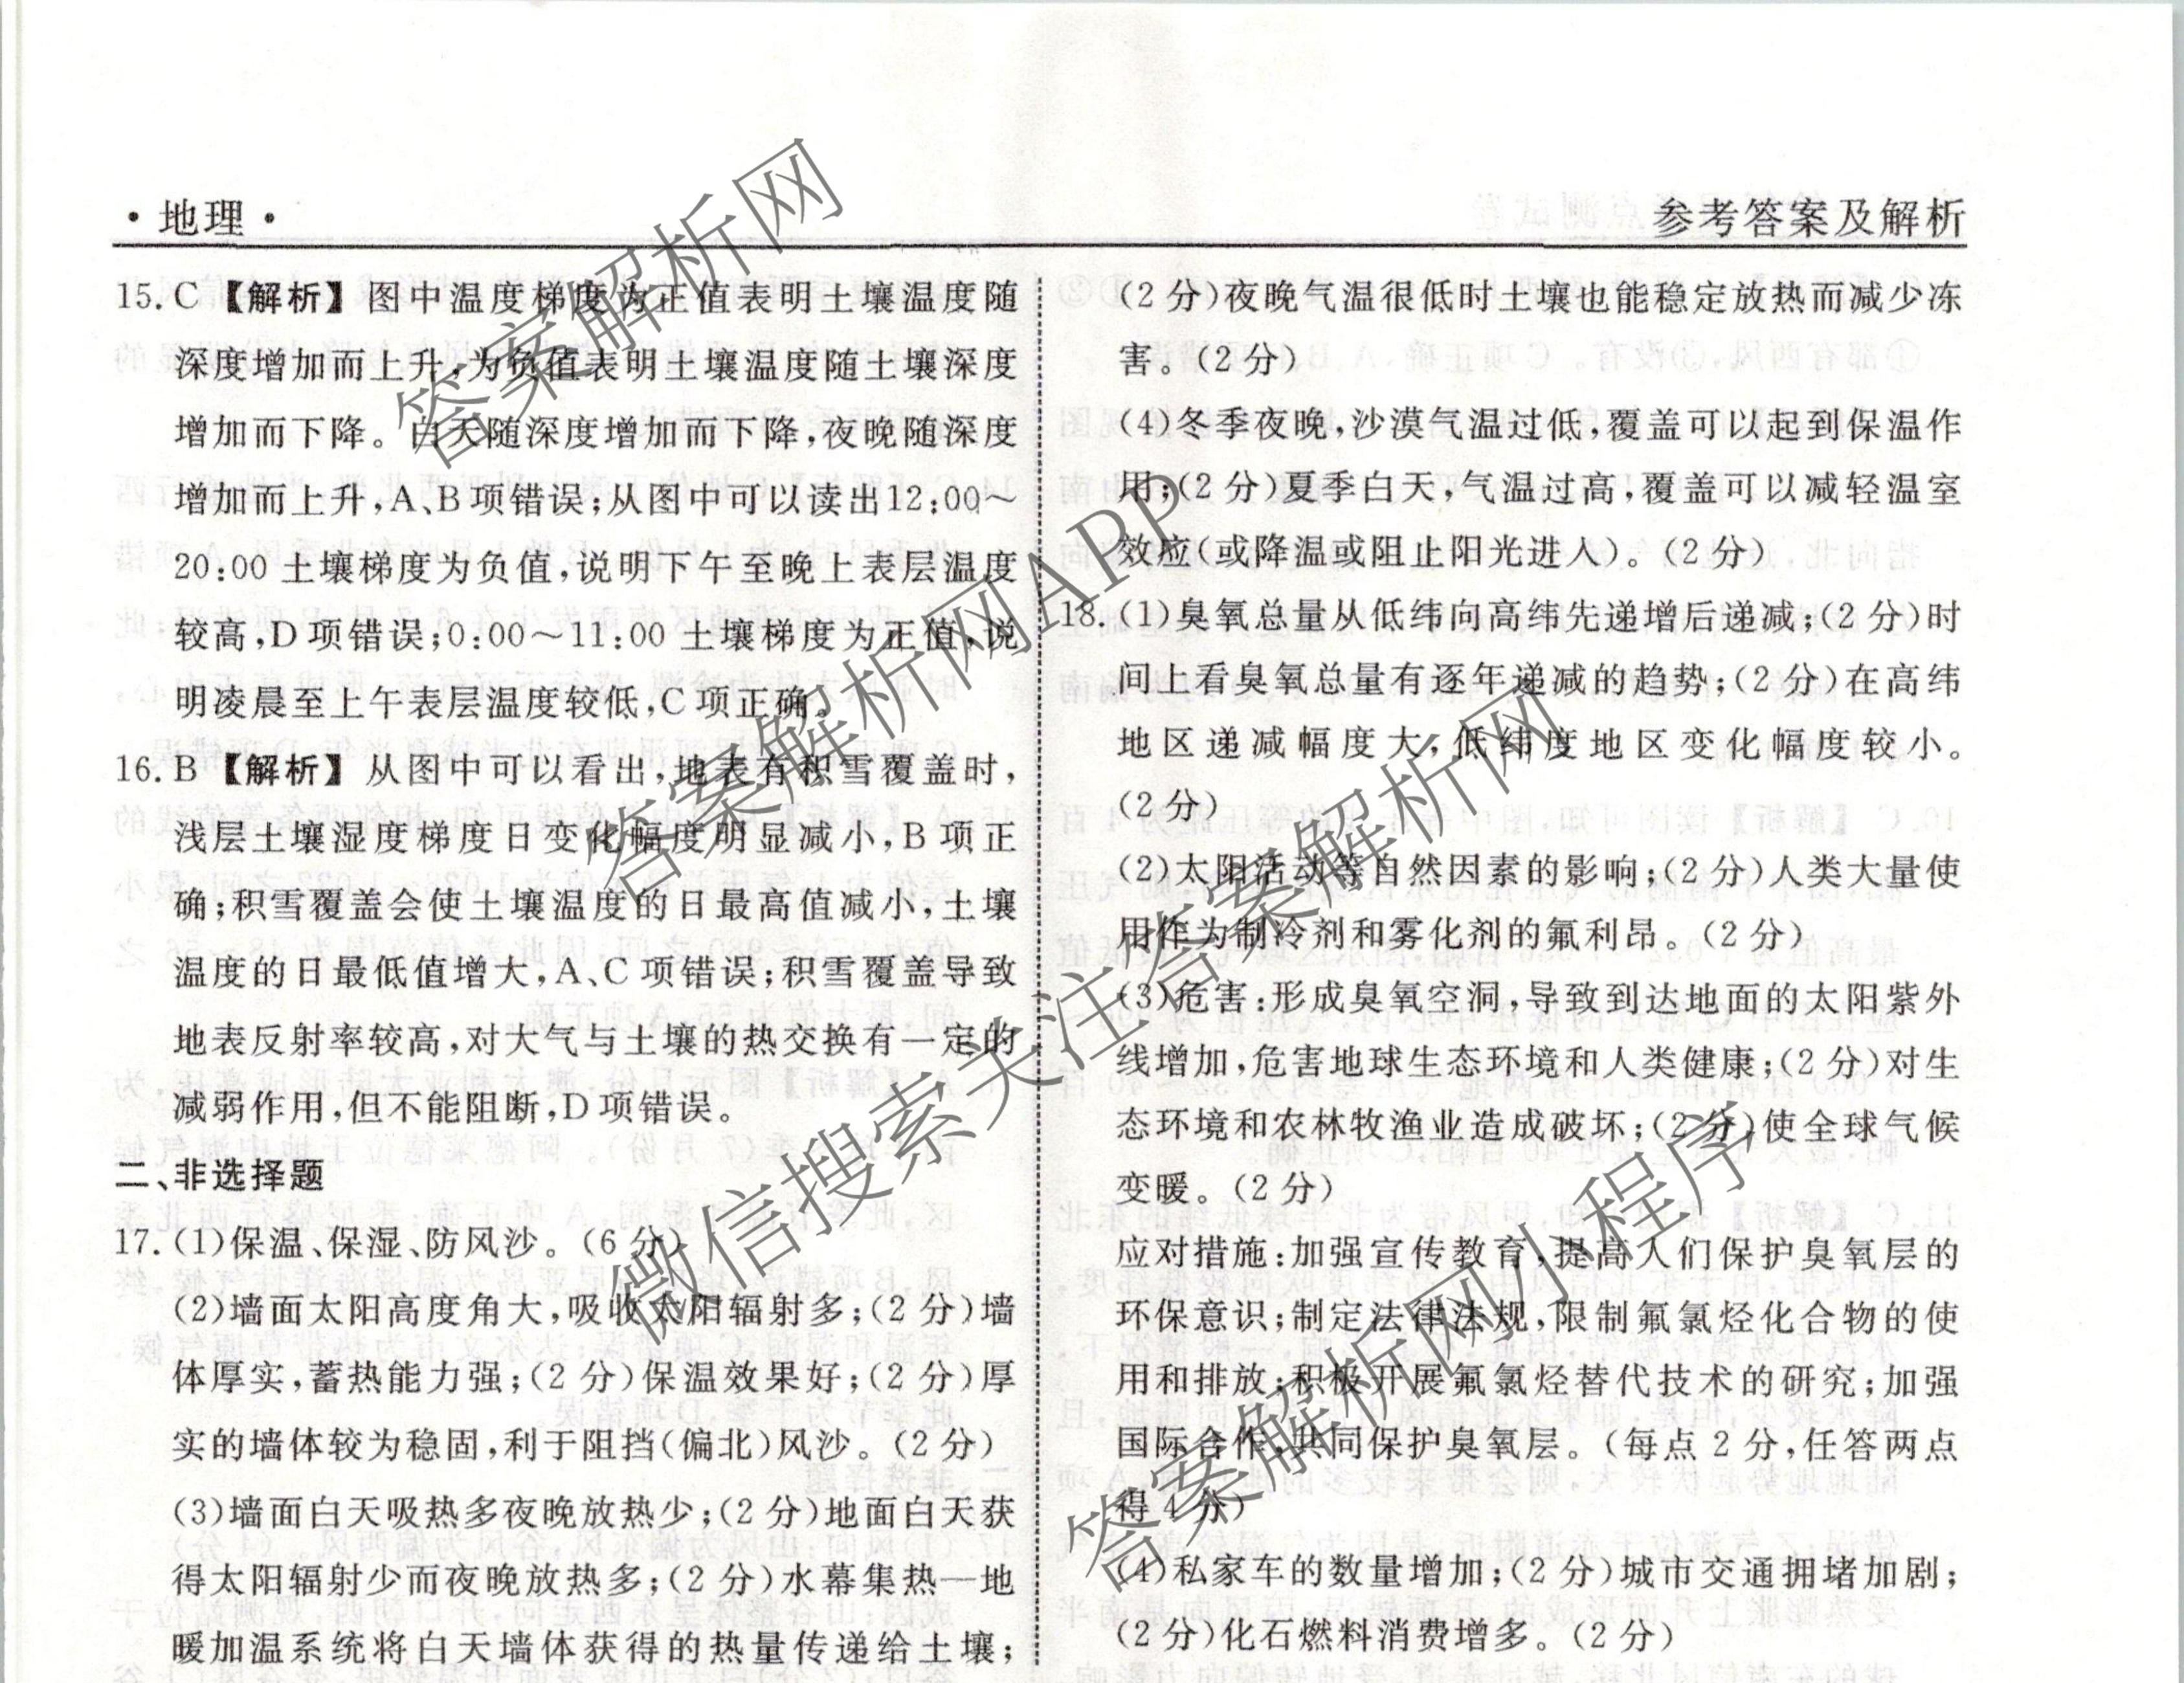 ·地理·
参考答案及解析
15.C【解析】图中温度梯度为正值表明土壤温度随
深度增加而上升,为负值表明土壤温度随土壤深度
增加而下降。白天随深度增加而下降,夜晚随深度
增加而上升,A、B项错误;从图中可以读出12:00~
20:00土壤梯度为负值,说明下午至晚上表层温度
较高,D项错误;0:00~11:00土壤梯度为正值,说
明凌晨至上午表层温度较低,C项正确。
16.B【解析】从图中可以看出,地表有积雪覆盖时,
浅层土壤湿度梯度日变化幅度明显减小,B项正
确;积雪覆盖会使土壤温度的日最高值减小,土壤
温度的日最低值增大,A、C项错误;积雪覆盖导致
地表反射率较高,对大气与土壤的热交换有一定的
减弱作用,但不能阻断,D项错误。
二、非选择题
17.(1)保温、保湿、防风沙。(6分)
(2)墙面太阳高度角大,吸收太阳辐射多;(2分)墙
体厚实,蓄热能力强;(2分)保温效果好;(2分)厚
实的墙体较为稳固,利于阻挡(偏北)风沙。(2分)
(3)墙面白天吸热多夜晚放热少;(2分)地面白天获
得太阳辐射少而夜晚放热多;(2分)水幕集热—地
暖加温系统将白天墙体获得的热量传递给土壤;
(2分)夜晚气温很低时土壤也能稳定放热而减少冻
害。(2分)
(4)冬季夜晚,沙漠气温过低,覆盖可以起到保温作
用;(2分)夏季白天,气温过高,覆盖可以减轻温室
效应(或降温或阻止阳光进人)。(2分)
18.(1)臭氧总量从低纬向高纬先递增后递减;(2分)时
间上看臭氧总量有逐年递减的趋势;(2分)在高纬
地区递减幅度大,低纬度地区变化幅度较小。
(2分)
(2)太阳活动等自然因素的影响;(2分)人类大量使
用作为制冷剂和雾化剂的氟利昂。(2分)
(3)危害:形成臭氧空洞,导致到达地面的太阳紫外
线增加,危害地球生态环境和人类健康;(2分)对生
态环境和农林牧渔业造成破坏;(2分)使全球气候
变暖。(2分)
应对措施:加强宣传教育,提高人们保护臭氧层的
环保意识;制定法律法规,限制氟氯烃化合物的使
用和排放;积极开展氟氯烃替代技术的研究;加强
国际合作,共同保护臭氧层。(每点2分,任答两点
得4分)
(4)私家车的数量增加;(2分)城市交通拥堵加剧;
(2分)化石燃料消费增多。(2分)
答案解析网
答案解析网APP
微信搜索关注答案解析网
答案解析网小程序